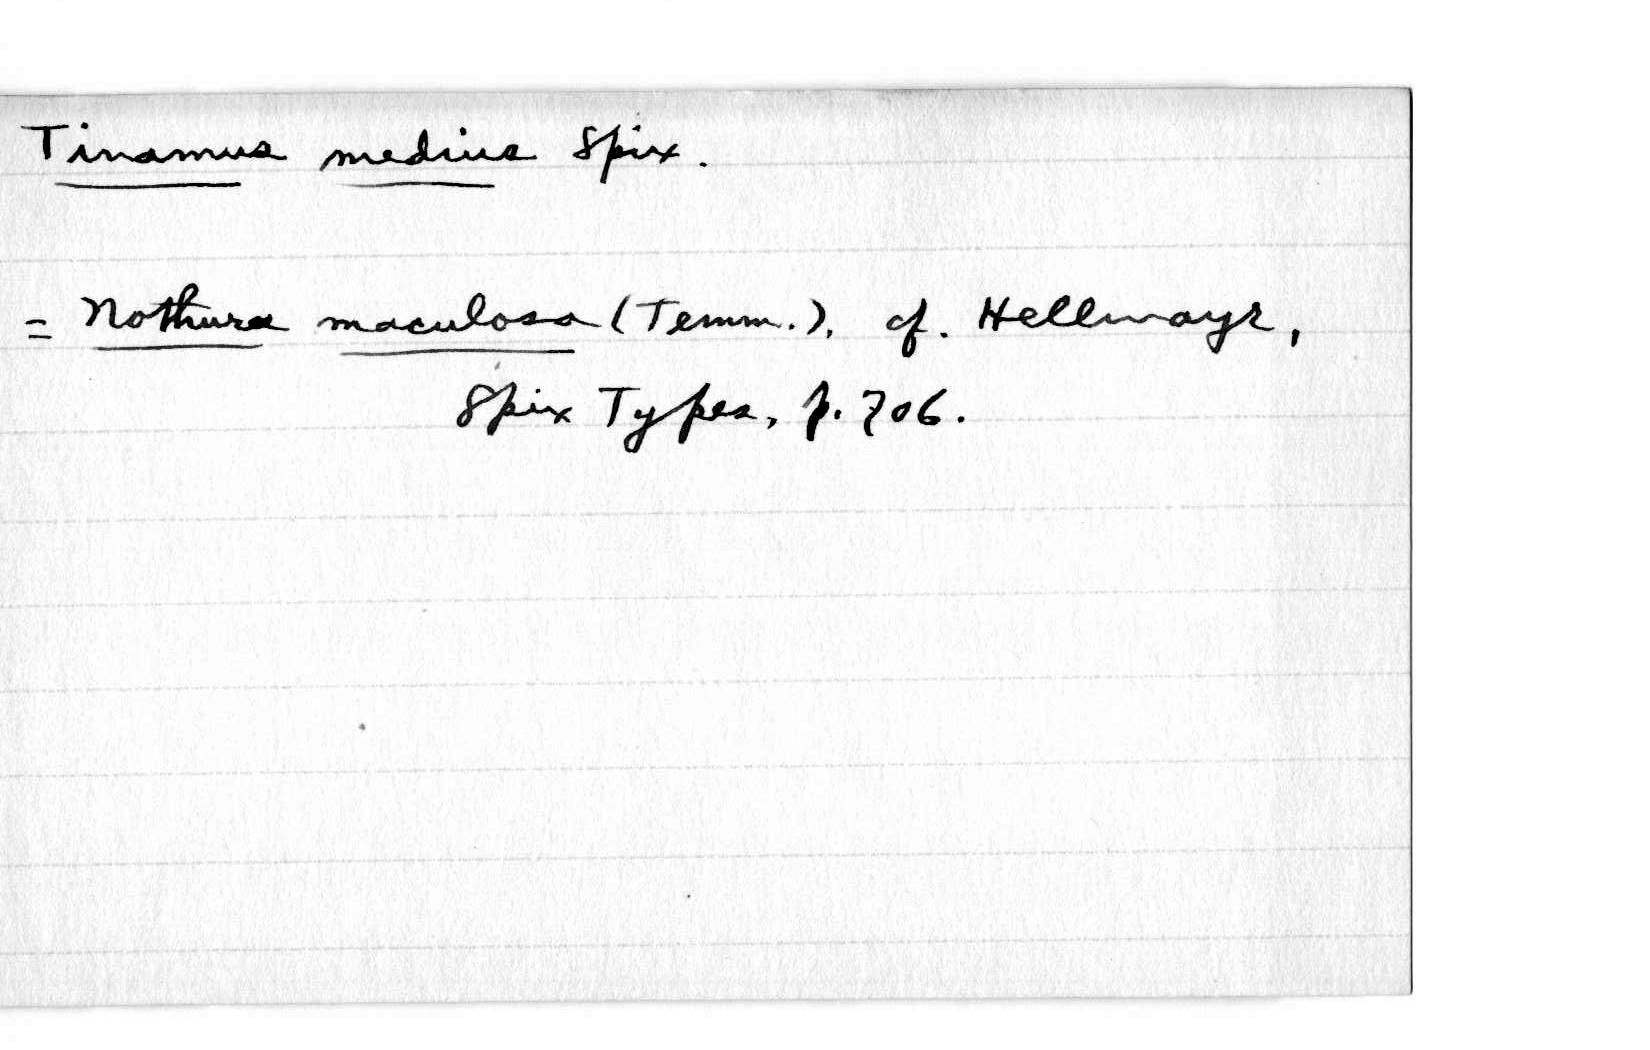 Tinamus medius Spix.
= Nothura maculosa (Temm.), cf. Hellmayr,
Spix Types, p. 706.